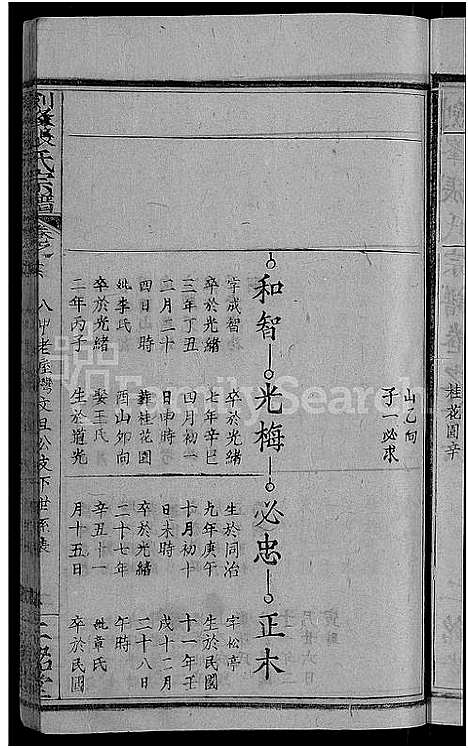 桂花園辛
山乙向
子一必求
和智 光梅 必忠 正木
字成智
卒於光緒
三年丁丑
二月二十
四日 時
妣李氏
卒於光緒
二年丙子
卒於光緒
七年辛巳
四月初一
日申時
葬桂花園
酉山卯向
娶王氏
生於道光
生於同治
九年庚午
十月初十
日未時
卒於光緒
二十七年
辛丑十一
月十五日
字松亭
生於民國
十一年壬
戌十二月
二十八日
午時
妣章氏
卒於民國
張氏宗譜
卷之
八冲老屋灣文旦公支下世系表
FamilySearch